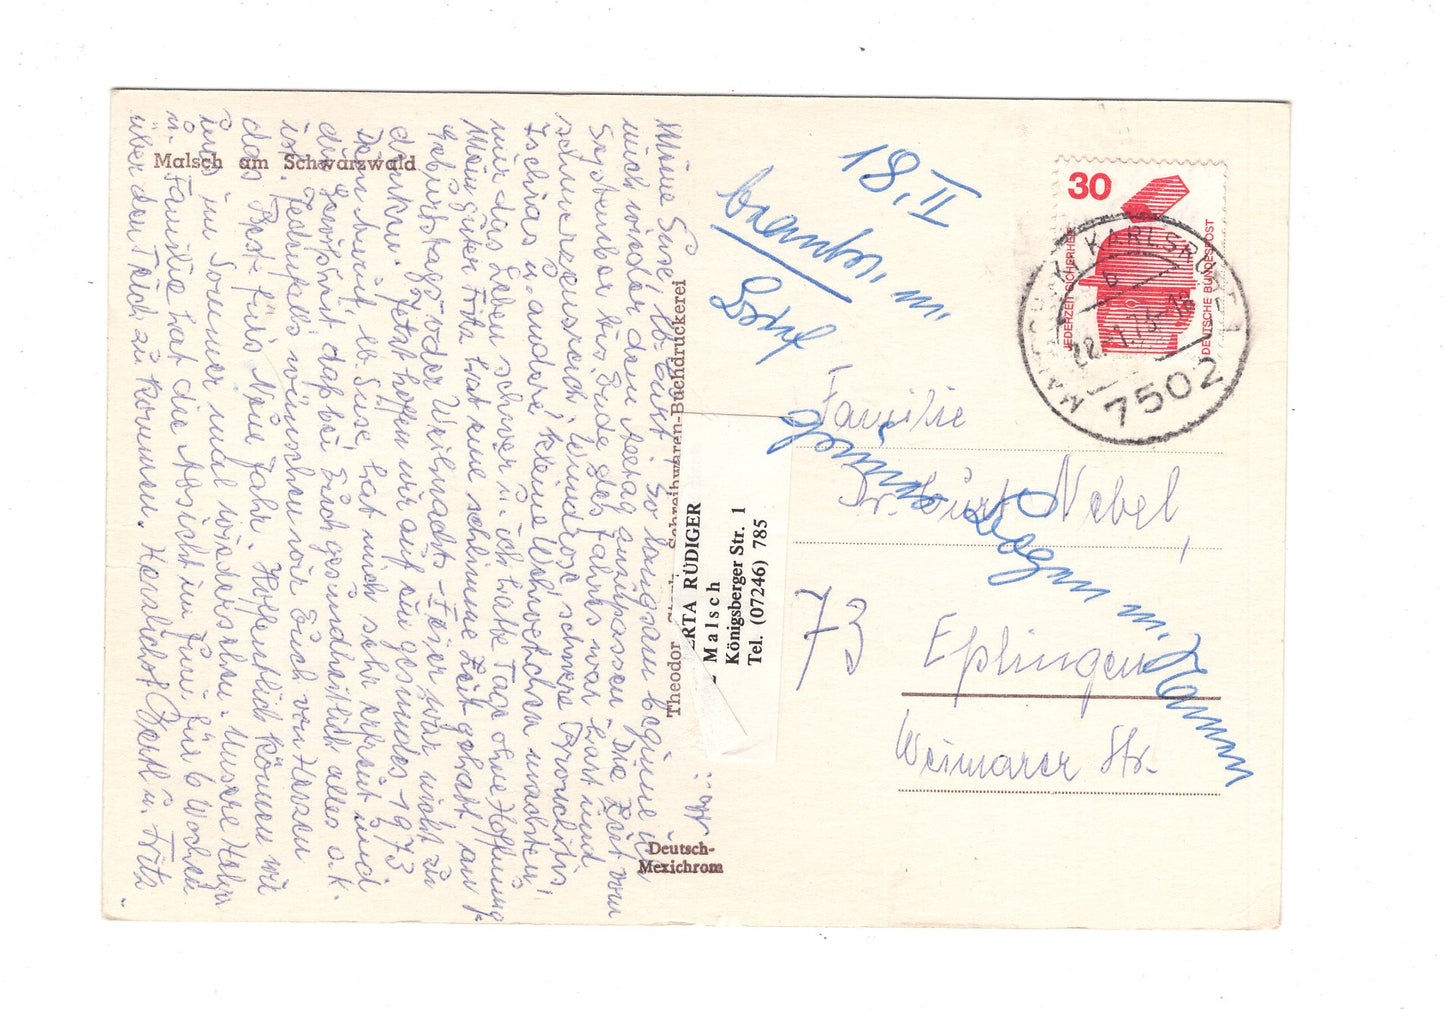 Malsch am Schwarzwald
Meine Suse! Ab heut! So langsam beginne ich
mich wieder dem Alltag anzupassen. Die Zeit vom
September bis Ende des Jahres war hart und
schmerzensreich. Windrose, schwere Bronchitis,
Ischias u. andere kleine Wehwehchen machten
mir das Leben schwer u. ich hatte Tage ohne Hoffnung.
Mein guter Fritz hat eine schlimme Zeit gehabt, an
Geburtstags- oder Weihnachts-Feier war nicht zu
denken. Jetzt hoffen wir auf ein gesundes 1973
Dein Brief, lb. Suse, hat mich sehr erfreut und
die Gewißheit daß bei Euch gesundheitlich alles o.k.
ist. Jedenfalls wünschen wir Euch von Herzen
das Best. fürs Neue Jahr. Hoffentlich können wir
uns im Sommer mal wiedersehn. Unsere Helga
u. Familie hat die Absicht im Juni für 6 Wochen
über den Teich zu kommen. Herzlichst Bertl u. Fritz
Theodor Stark Schreibwaren-Buchdruckerei
Deutsch-
Mexichrom
ERTA RÜDIGER
Malsch
Königsberger Str. 1
Tel. (07246) 785
18. II
beantw. m
Brief
30
JEDERZEIT SICHERHEIT
DEUTSCHE BUNDESPOST
MALSCH KR KARLSRUHE 1
b
22.-1.73-18
7502
Familie
Dr. Kurt Nebel,
73
Eßlingen
Weimarer Str.